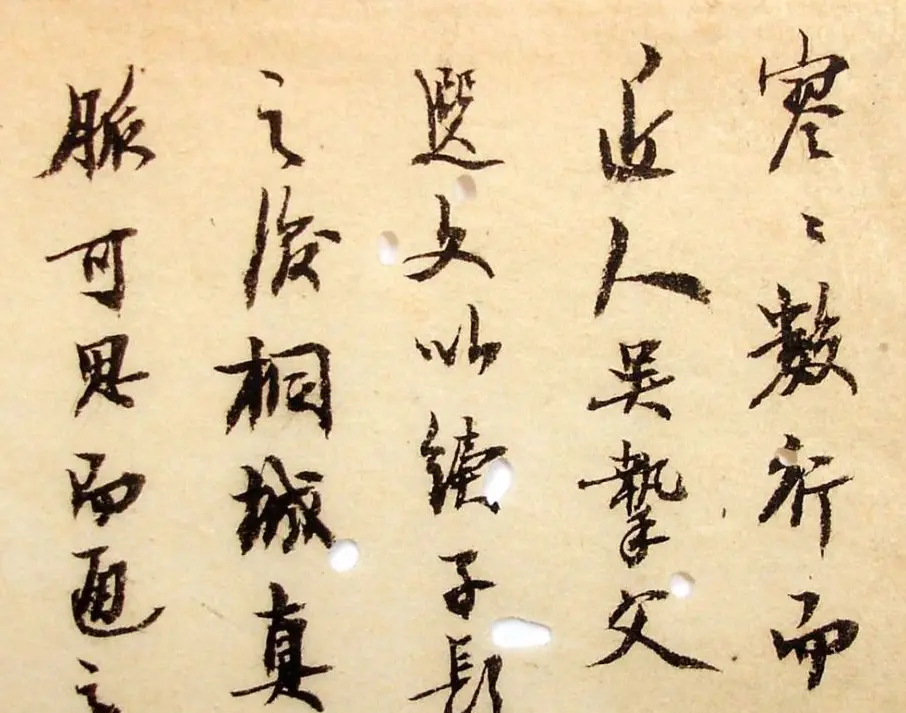 寥〻數行而
近人吳摯父
選文以續子長
之後桐城真
脈可思而通之